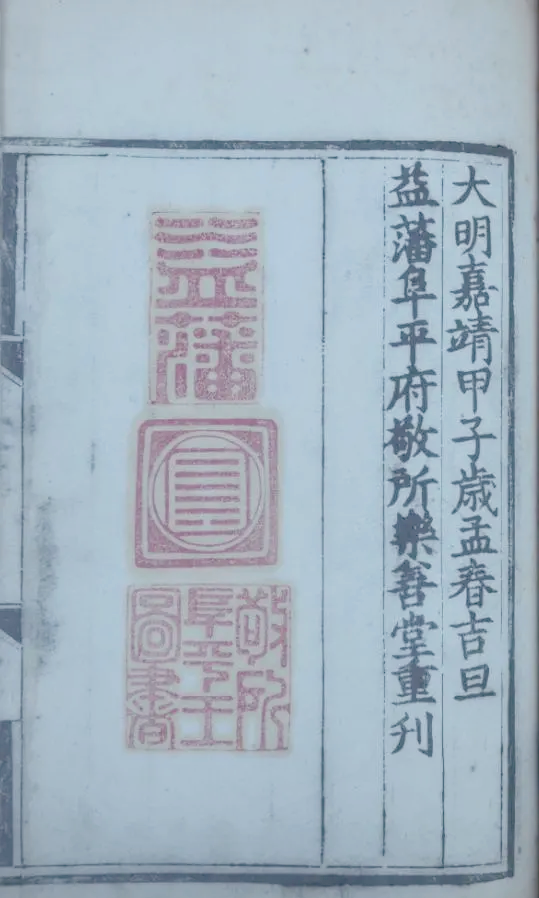 大明嘉靖甲子歲孟春吉旦
益藩阜平府敬所樂善堂重刋
益藩
敬所
阜平王
圖書